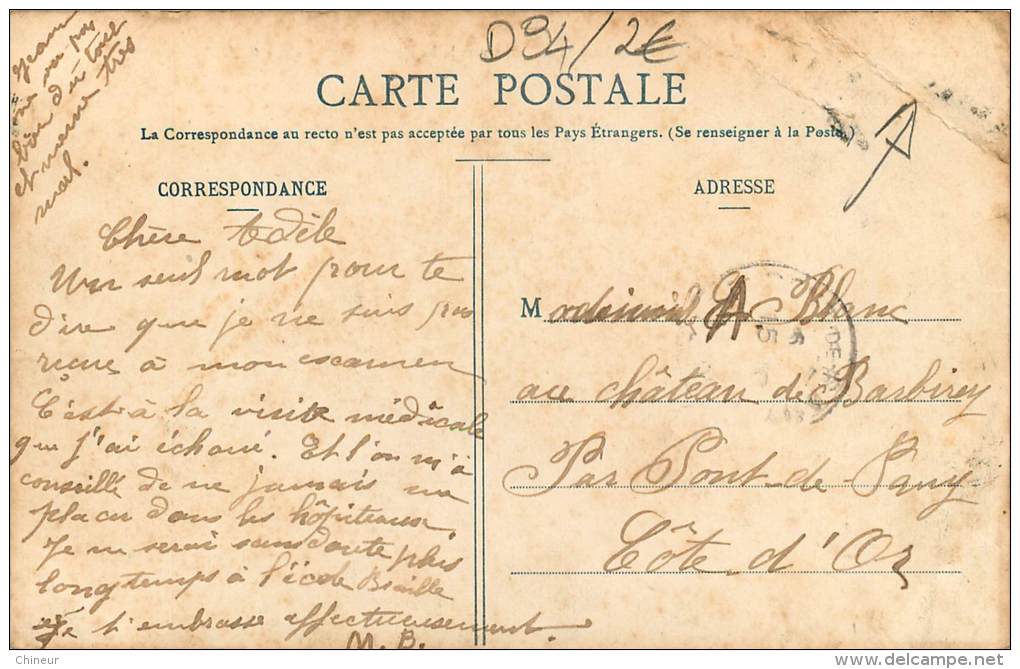 Jean
ne va pas
bien du tout
et meme très
mal.
D34/2€
CARTE POSTALE
La Correspondance au recto n'est pas acceptée par tous les Pays Étrangers. (Se renseigner à la Poste.)
CORRESPONDANCE
ADRESSE
Chère Adèle
Un seul mot pour te
dire que je ne suis pas
recue à mon examen
C'est à la visite médicale
que j'ai échoué. Et l'on m'a
conseillé de ne jamais me
placer dans les hôpiteaux
Je ne serai sans doute plus
longtemps à l'école
Je t'embrasse affectueusement.
M. B.
M A. Blanc
au château de Barbirey
Par Pont-de-Pany
Côte d'Or
Chineur
delcampe.net